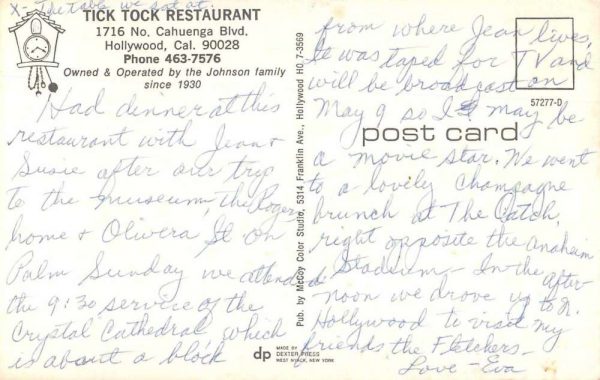 X - The table we sat at.
TICK TOCK RESTAURANT
1716 No. Cahuenga Blvd.
Hollywood, Cal. 90028
Phone 463-7576
Owned & Operated by the Johnson family
since 1930
Had dinner at this
restaurant with Jean &
Susie after our trip
to the museum, the Rogers
home & Olivera St. On
Palm Sunday we attended
the 9:30 service of the
Crystal Cathedral which
is about a block
Pub. by McCoy Color Studio, 5314 Franklin Ave., Hollywood HO 7-3569
dp MADE BY
DEXTER PRESS
WEST NYACK, NEW YORK
57277-D
post card
from where Jean lives.
It was taped for TV and
will be broadcast on
May 9 so I may be
a movie star. We went
to a lovely champagne
brunch at The Catch,
right opposite the Anaheim
Stadium - In the after-
noon we drove up to N.
Hollywood to visit my
friends the Fletchers -
Love - Eva